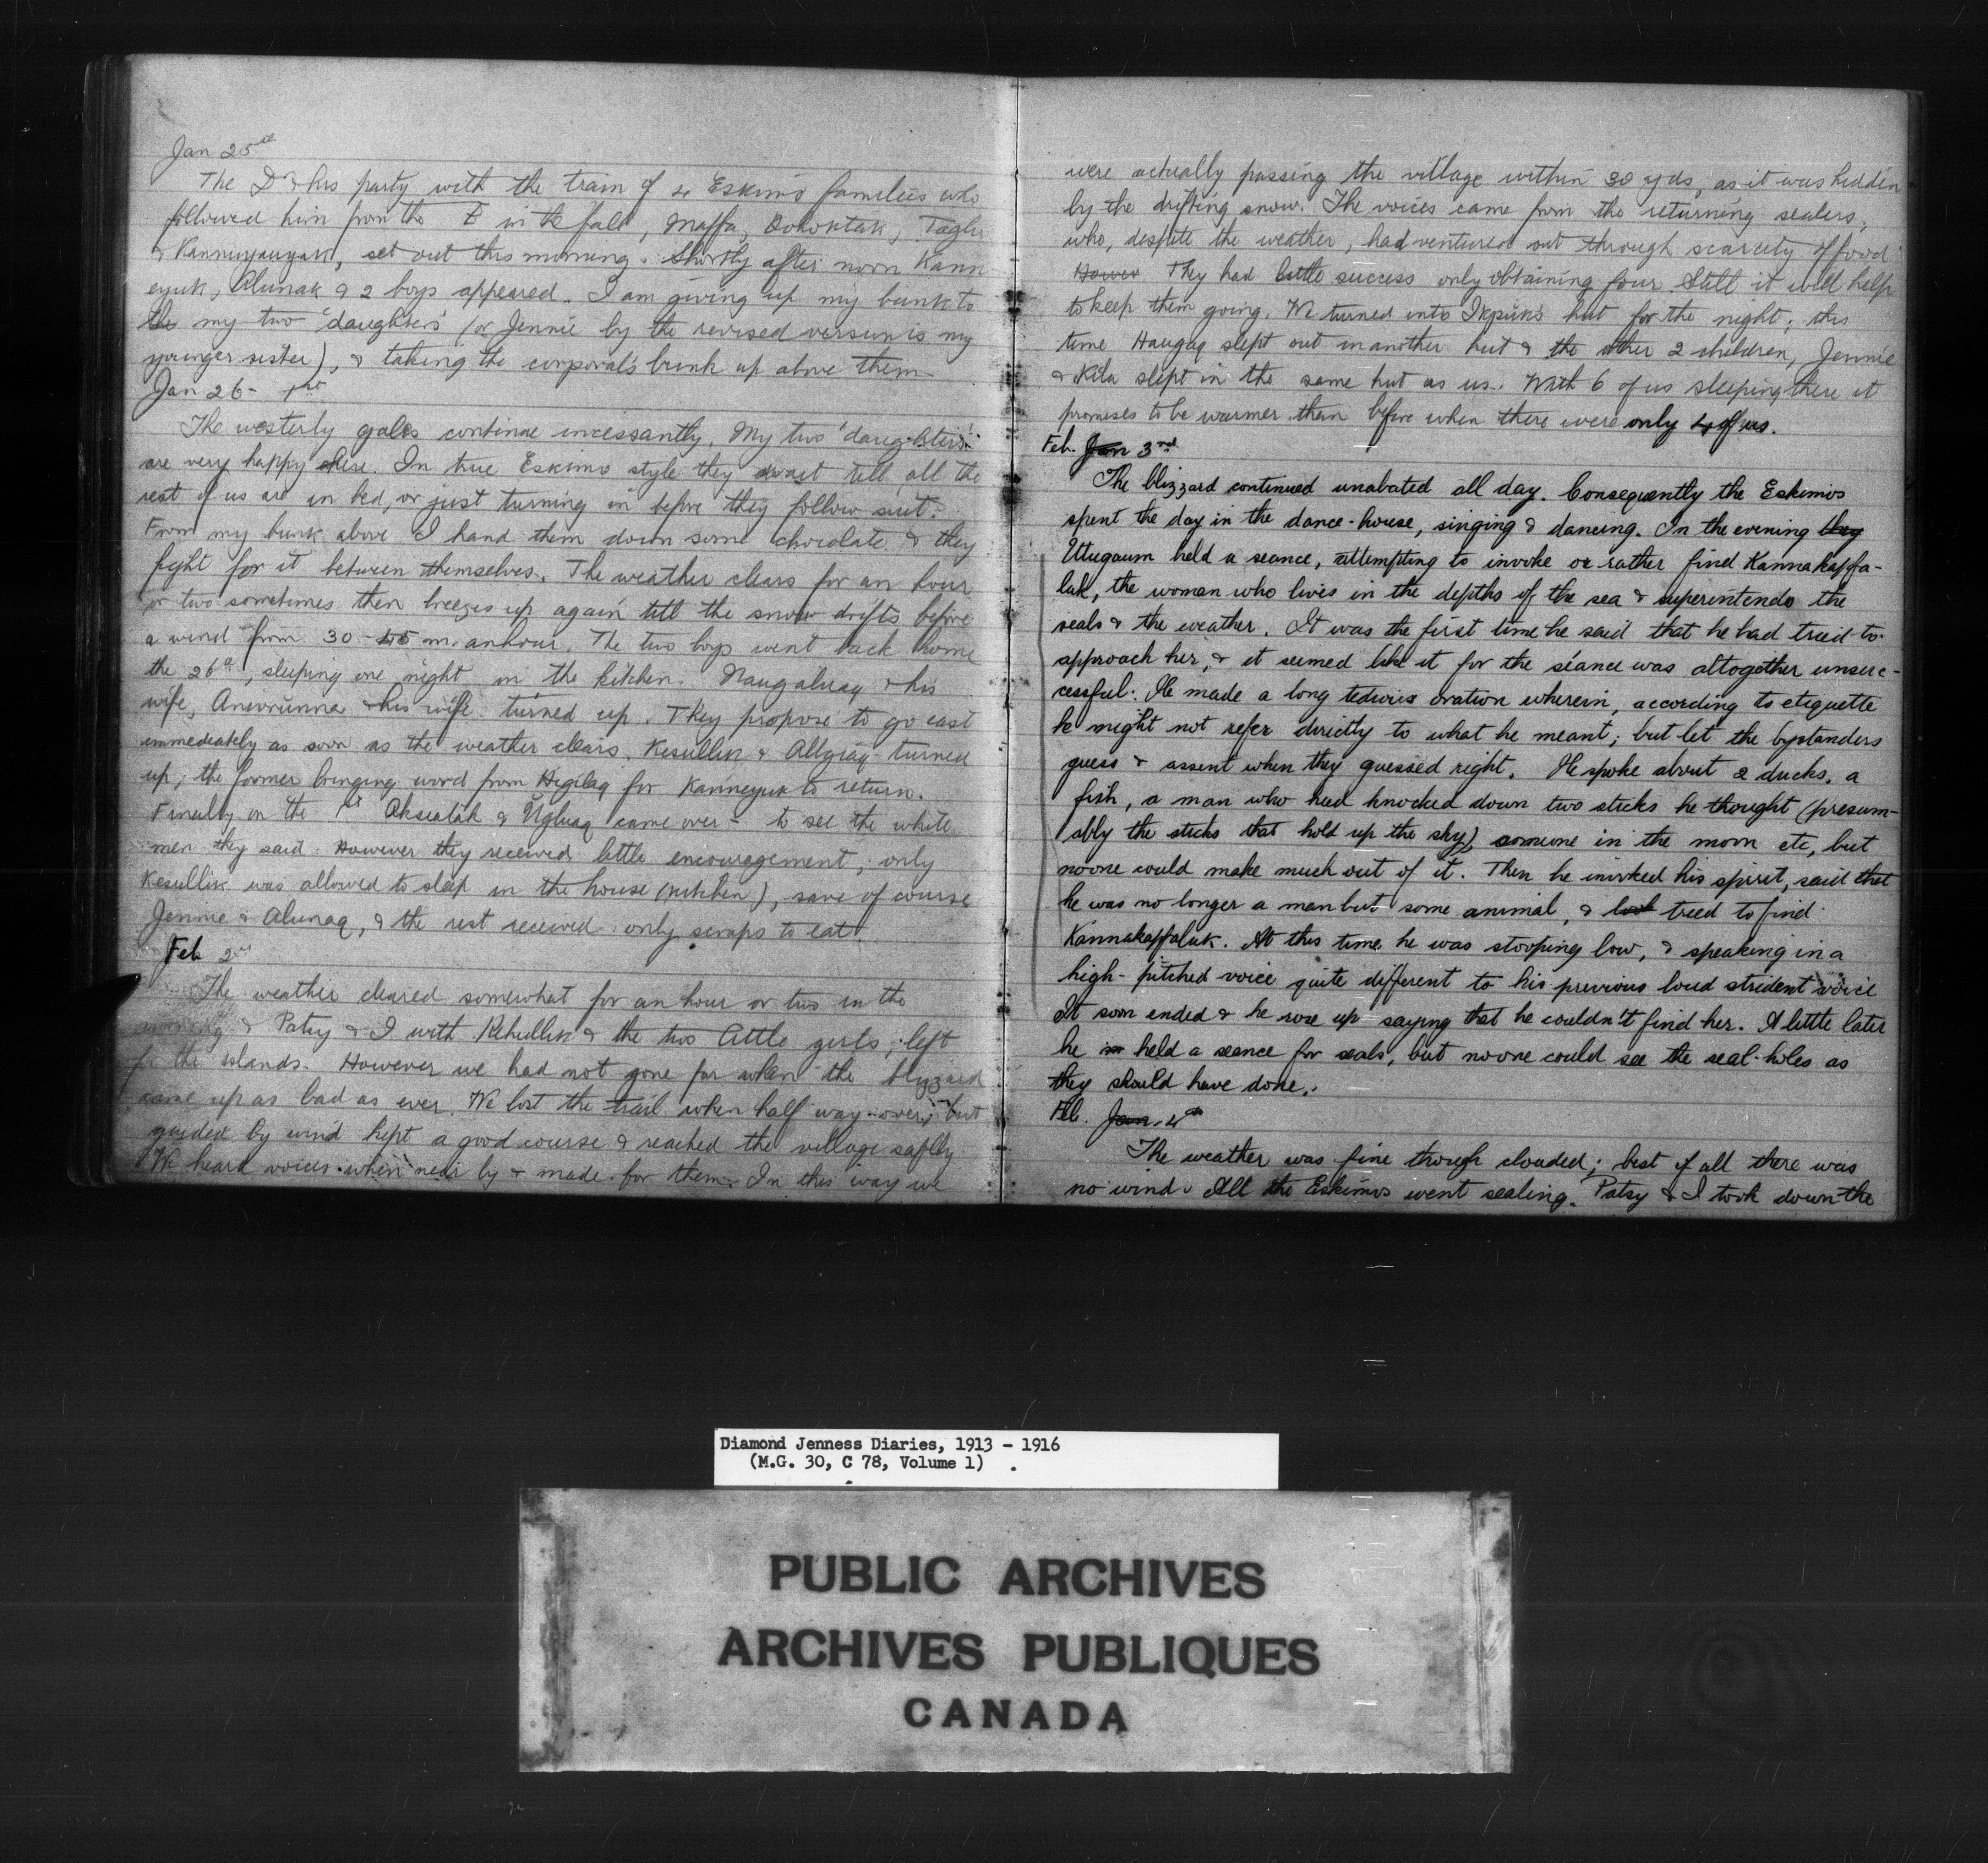 Jan 25th
The Dr & his party with the train of 4 Eskimo families who
followed him from the E in the fall, Maffa, Taglu
& set out this morning. Shortly after noon Kann
eyuk, Alunak & 2 boys appeared. I am giving up my bunk to
the my two 'daughters' (or Jennie by the revised version is my
younger sister), & taking the corporal's bunk up above them
Jan 26 - 1st
The westerly gales continue incessantly. My two 'daughters'
are very happy here. In true Eskimo style they wait till all the
rest of us are in bed, or just turning in before they follow suit.
From my bunk above I hand them down some chocolate & they
fight for it between themselves. The weather clears for an hour
or two sometimes then breezes up again till the snow drifts before
a wind from 30 - 45 m. an hour. The two boys went back home
the 26th, sleeping one night in the kitchen. Naugaluaq & his
wife, Anivrunna & his wife turned up. They propose to go east
immediately as soon as the weather clears. Kesullik & turned
up; the former bringing word from Higilaq for Kanneyuk to return.
Finally on the 1st Aksiatak & Ugluaq came over - to see the white
men they said. However they received little encouragement; only
Kesullik was allowed to sleep in the house (kitchen), save of course
Jennie & Alunaq, & the rest received only scraps to eat.
Feb 2nd
The weather cleared somewhat for an hour or two in the
morning & Patsy & I with Kehullik & the two little girls, left
for the islands. However we had not gone far when the blizzard
came up as bad as ever. We lost the trail when half way over, but
guided by wind kept a good course & reached the village safely
We heard voices when near by & made for them. In this way we
were actually passing the village within 30 yds, as it was hidden
by the drifting snow. The voices came from the returning sealers,
who, despite the weather, had ventured out through scarcity of food
Hower They had little success only obtaining four Still it will help
to keep them going. We turned into Ikpuk's hut for the night; this
time Haugaq slept out in another hut & the other 2 children, Jennie
& Kila slept in the same hut as us. With 6 of us sleeping there it
promises to be warmer than before when there were only 4 of us.
Feb. Jan 3rd
The blizzard continued unabated all day. Consequently the Eskimos
spent the day in the dance-house, singing & dancing. In the evening they
Utugaum held a seance, attempting to invoke or rather find Kannakapfa-
luk, the woman who lives in the depths of the sea & superintends the
seals & the weather. It was the first time he said that he had tried to
approach her, & it seemed like it for the séance was altogether unsuc-
cessful. He made a long tedious oration wherein, according to etiquette
he might not refer directly to what he meant; but let the bystanders
guess & assent when they guessed right. He spoke about 2 ducks, a
fish, a man who had knocked down two sticks he thought (presum-
ably the sticks that hold up the sky), someone in the moon etc, but
noone could make much out of it. Then he invoked his spirit, said that
he was no longer a man but some animal, & took tried to find
Kannakapfaluk. At this time he was stooping low, & speaking in a
high-pitched voice quite different to his previous loud strident voice
It soon ended & he rose up saying that he couldn't find her. A little later
he held a seance for seals, but noone could see the seal-holes as
they should have done.
Feb. Jan. 4th
The weather was fine though clouded; best of all there was
no wind. All the Eskimos went sealing. Patsy & I took down the
Diamond Jenness Diaries, 1913 - 1916
(M.G. 30, C 78, Volume 1)
PUBLIC ARCHIVES
ARCHIVES PUBLIQUES
CANADA